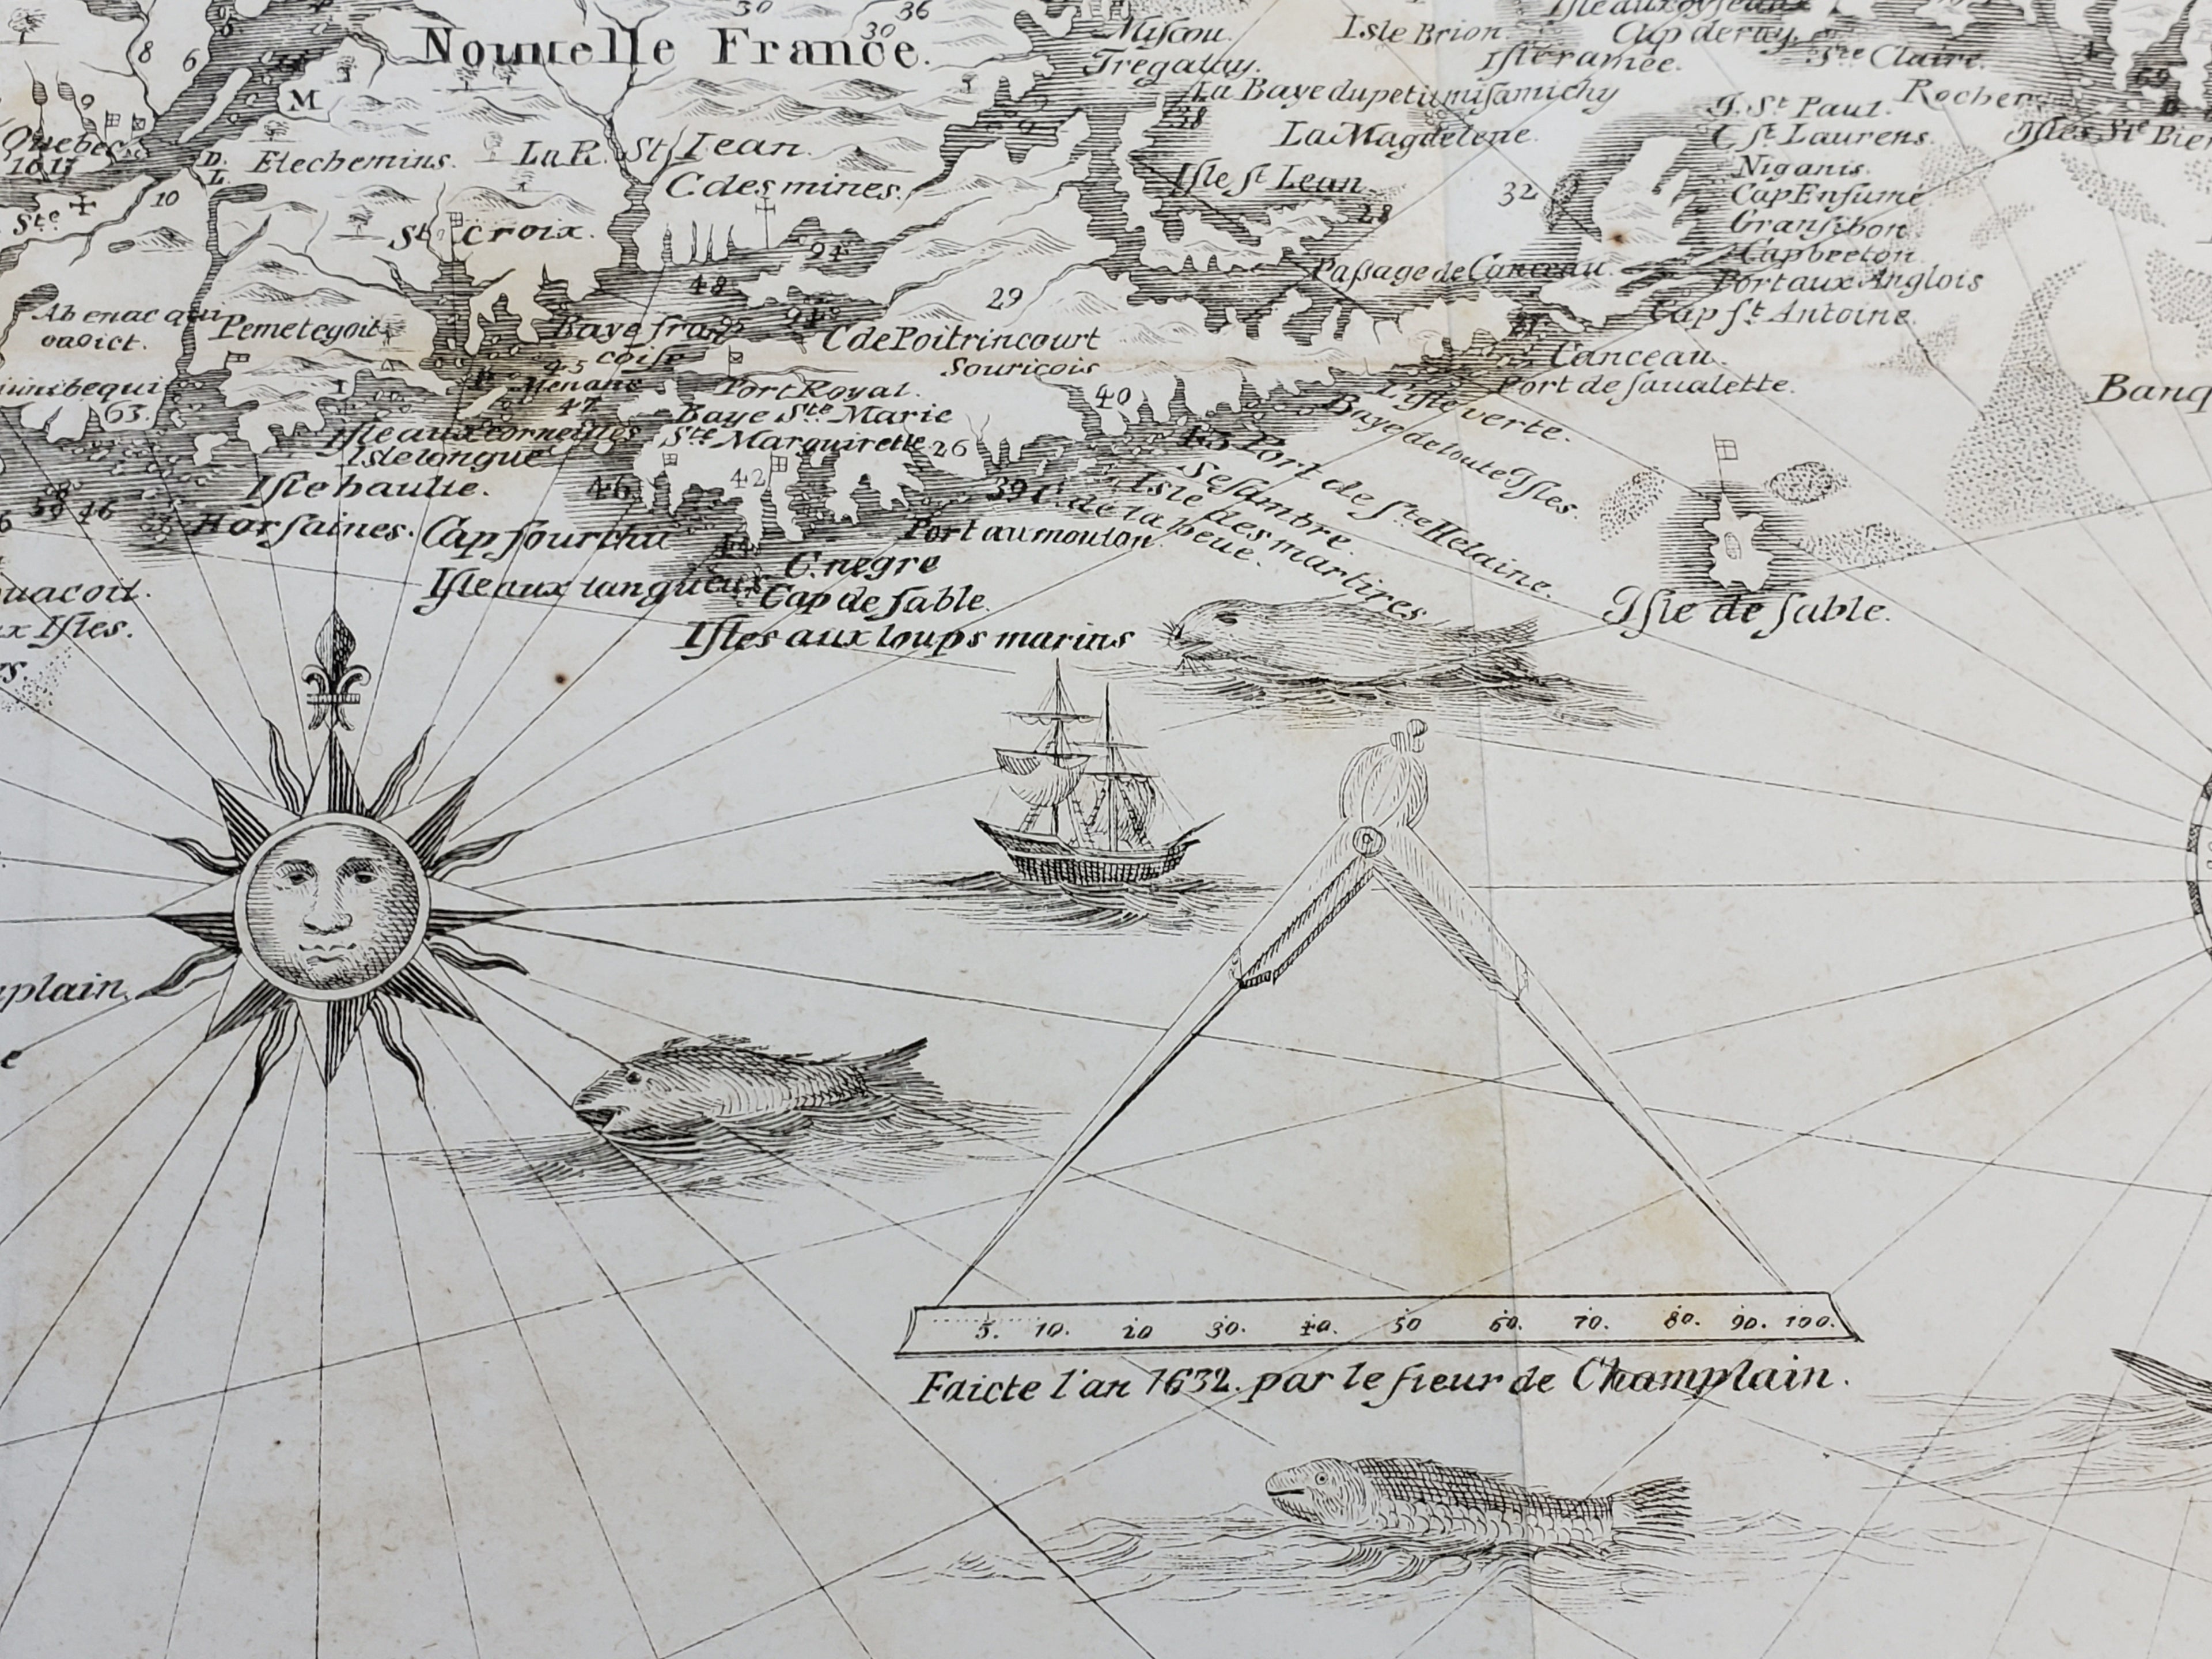 30
36
30
Nouuelle France.
Miscou.
Isle Brion
Isle aux oyseaux
Cap de ray.
Tregatuy.
Isle ramée.
Ste Claire.
8
6
M
69
La Baye du petit misamichy
38
I. St Paul.
Rocher
Quebec
La Magdelene.
C st. Laurens.
Isles Ste Pier
D.
L.
Etechemins.
La R. St Iean.
Niganis.
Ste
10
C des mines.
Isle st Iean
32
Cap Enfumé
28
Gransibon
St croix.
94
Passage de Canceau.
Capbreton
48
Port aux Anglois
29
Cap st. Antoine.
Pemetegoit
Baye fran
coise
C de Poitrincourt
Souricois
45
Menane
47
Canceau.
Port de saualette.
Banq
63.
Port Royal.
40
L'isle verte.
Baye Ste Marie
Baye de toute Isles.
Isle aux corneilles
Ste Marguirette
26
Isle longue
42
43 Port de ste Helaine.
Sesambre.
Isle des martires
Isle haulte.
46
39 C. de la heue.
59 46
Cap fourchu
Port au mouton.
44
C. negre
Isle aux tangueux
Cap de sable.
Isle de sable.
Isles aux loups marins
x Isles.
plain,
5. 10. 20 30. 40. 50 60. 70. 80. 90. 100.
Faicte l'an 1632. par le sieur de Champlain.